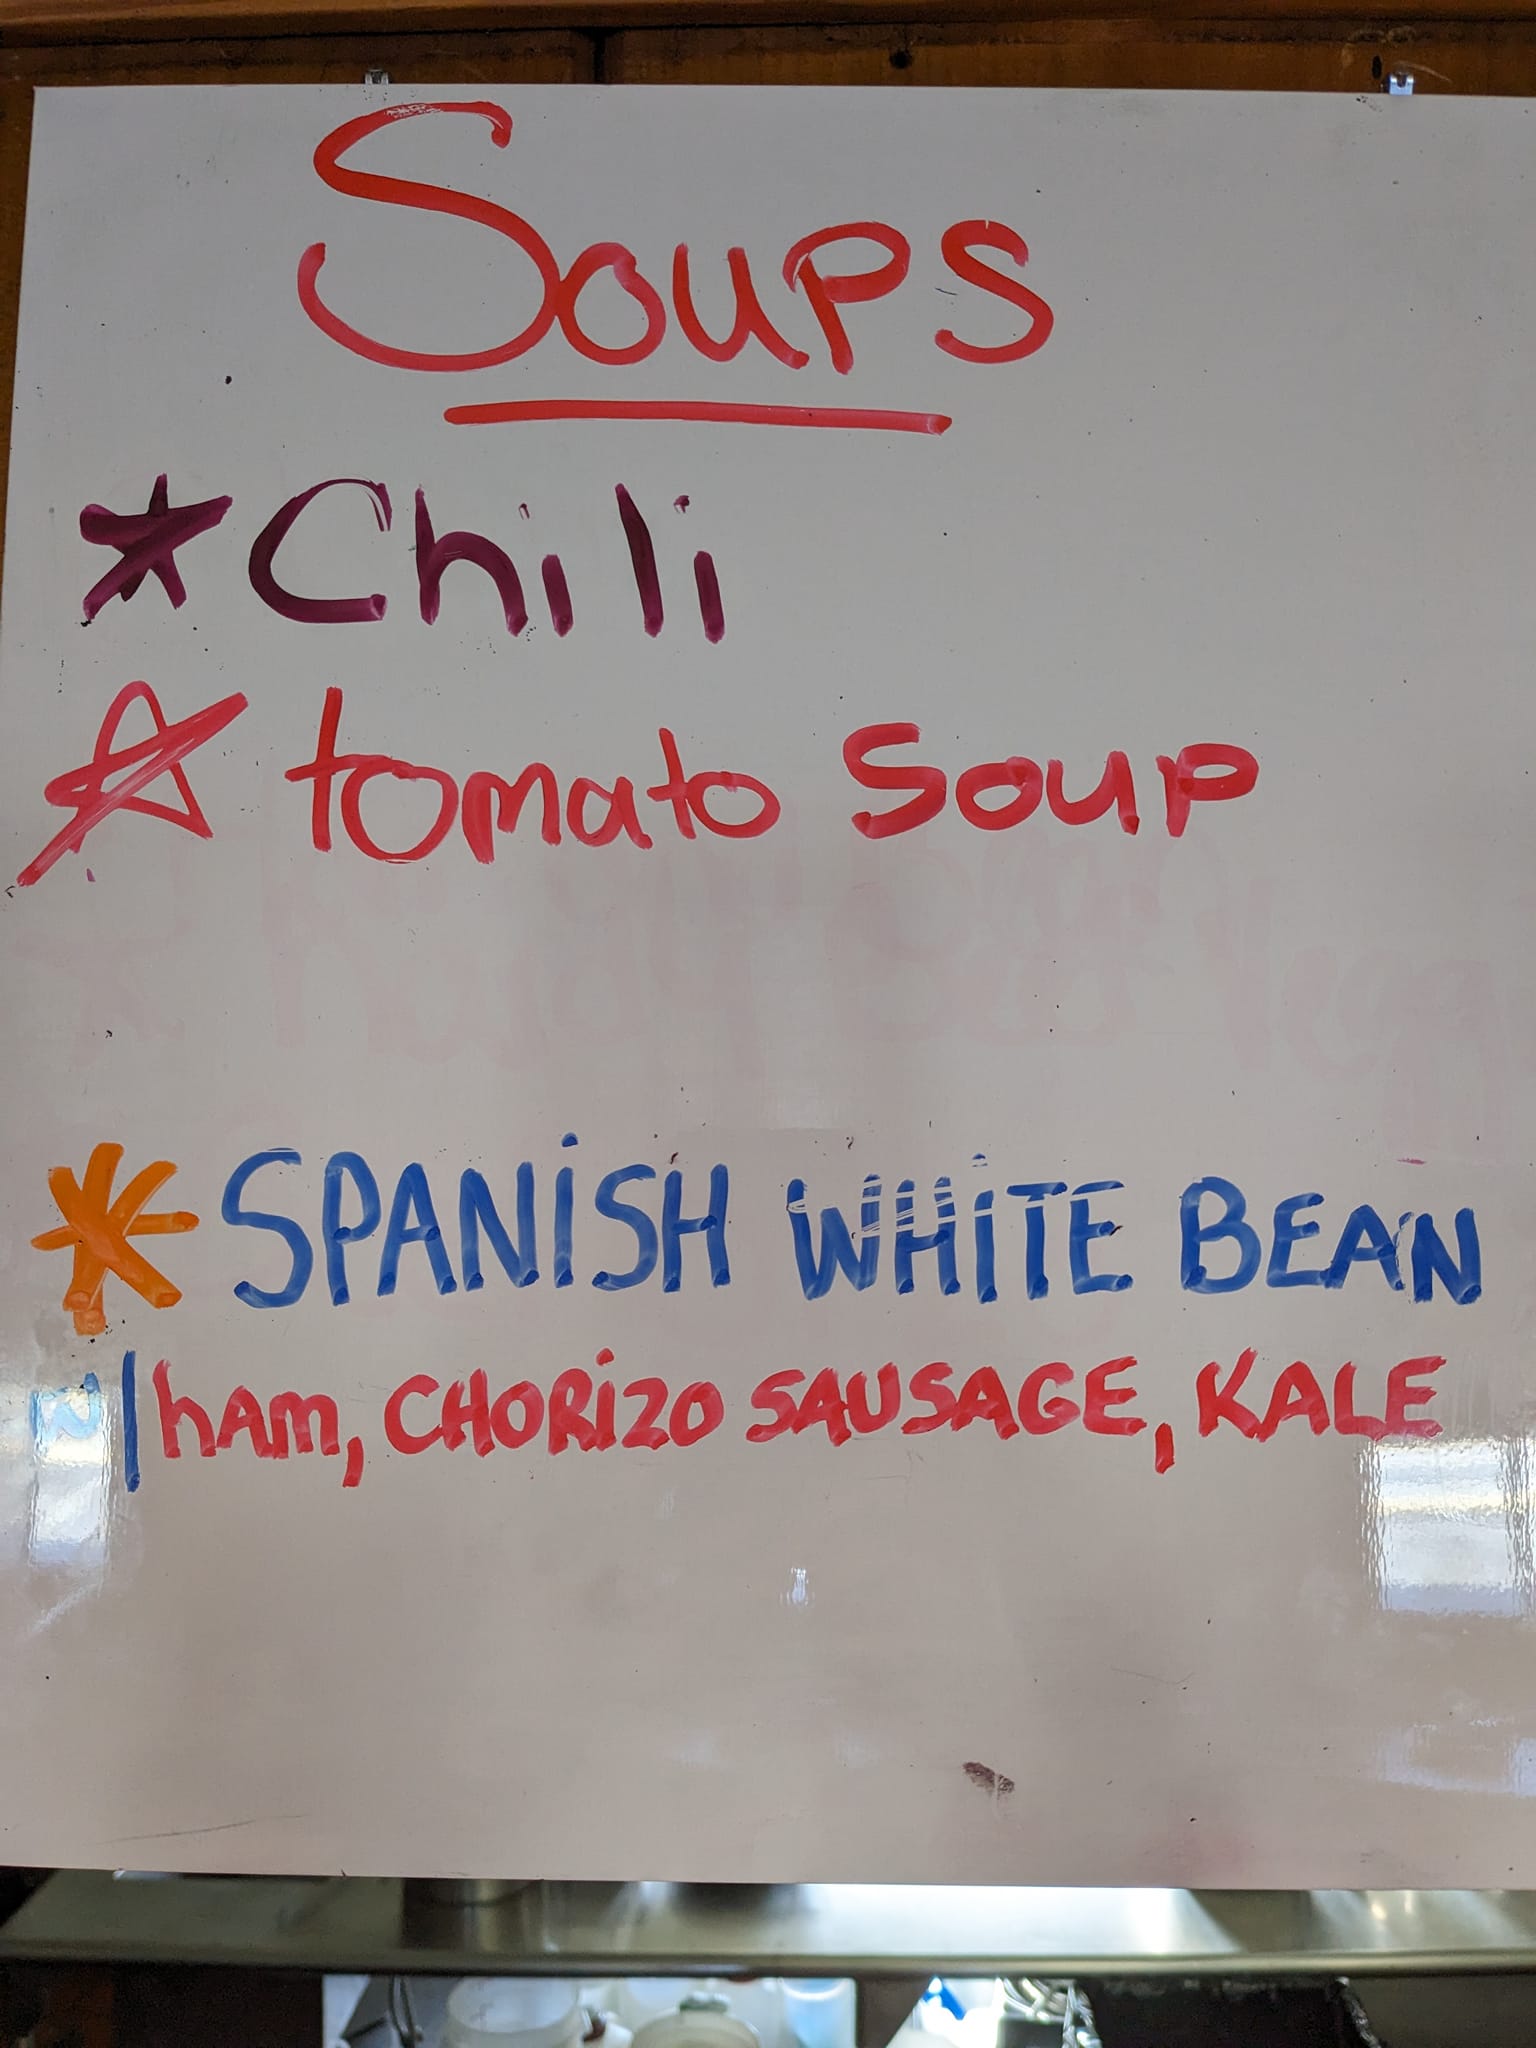 Soups
* Chili
☆ tomato Soup
* SPANiSH WHiTE BEAN
w/ hAm, CHORiZO SAUSAGE, KALE